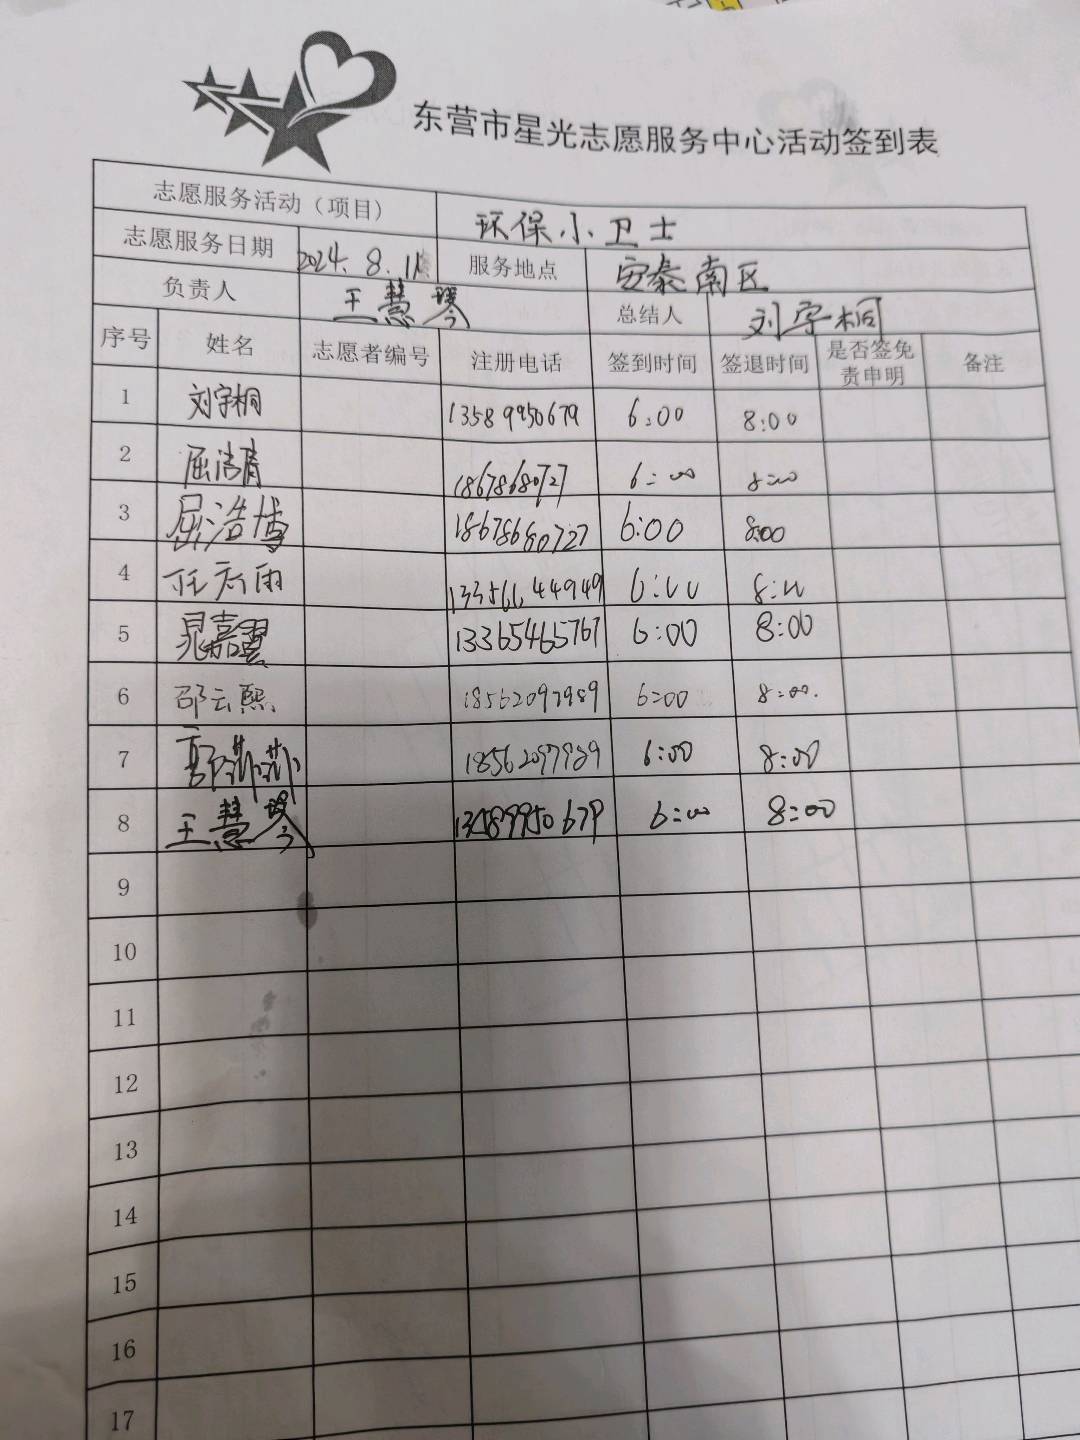 东营市星光志愿服务中心活动签到表
志愿服务活动（项目） 环保小卫士
志愿服务日期 2024.8.11 服务地点 安泰南区
负责人 王慧琴 总结人 刘宇桐
序号 姓名 志愿者编号 注册电话 签到时间 签退时间 是否签免责申明 备注
1 刘宇桐 13589950679 6:00 8:00
2 屈浩 18678680727 6:00 8:00
3 屈浩博 18678680727 6:00 8:00
4 任 雨 13356644949 6:00 8:00
5 晁嘉 13365465767 6:00 8:00
6 邵云熙 18562097989 6:00 8:00.
7 郭莎莎 18562097989 6:00 8:00
8 王慧琴 13589950679 6:00 8:00
9
10
11
12
13
14
15
16
17